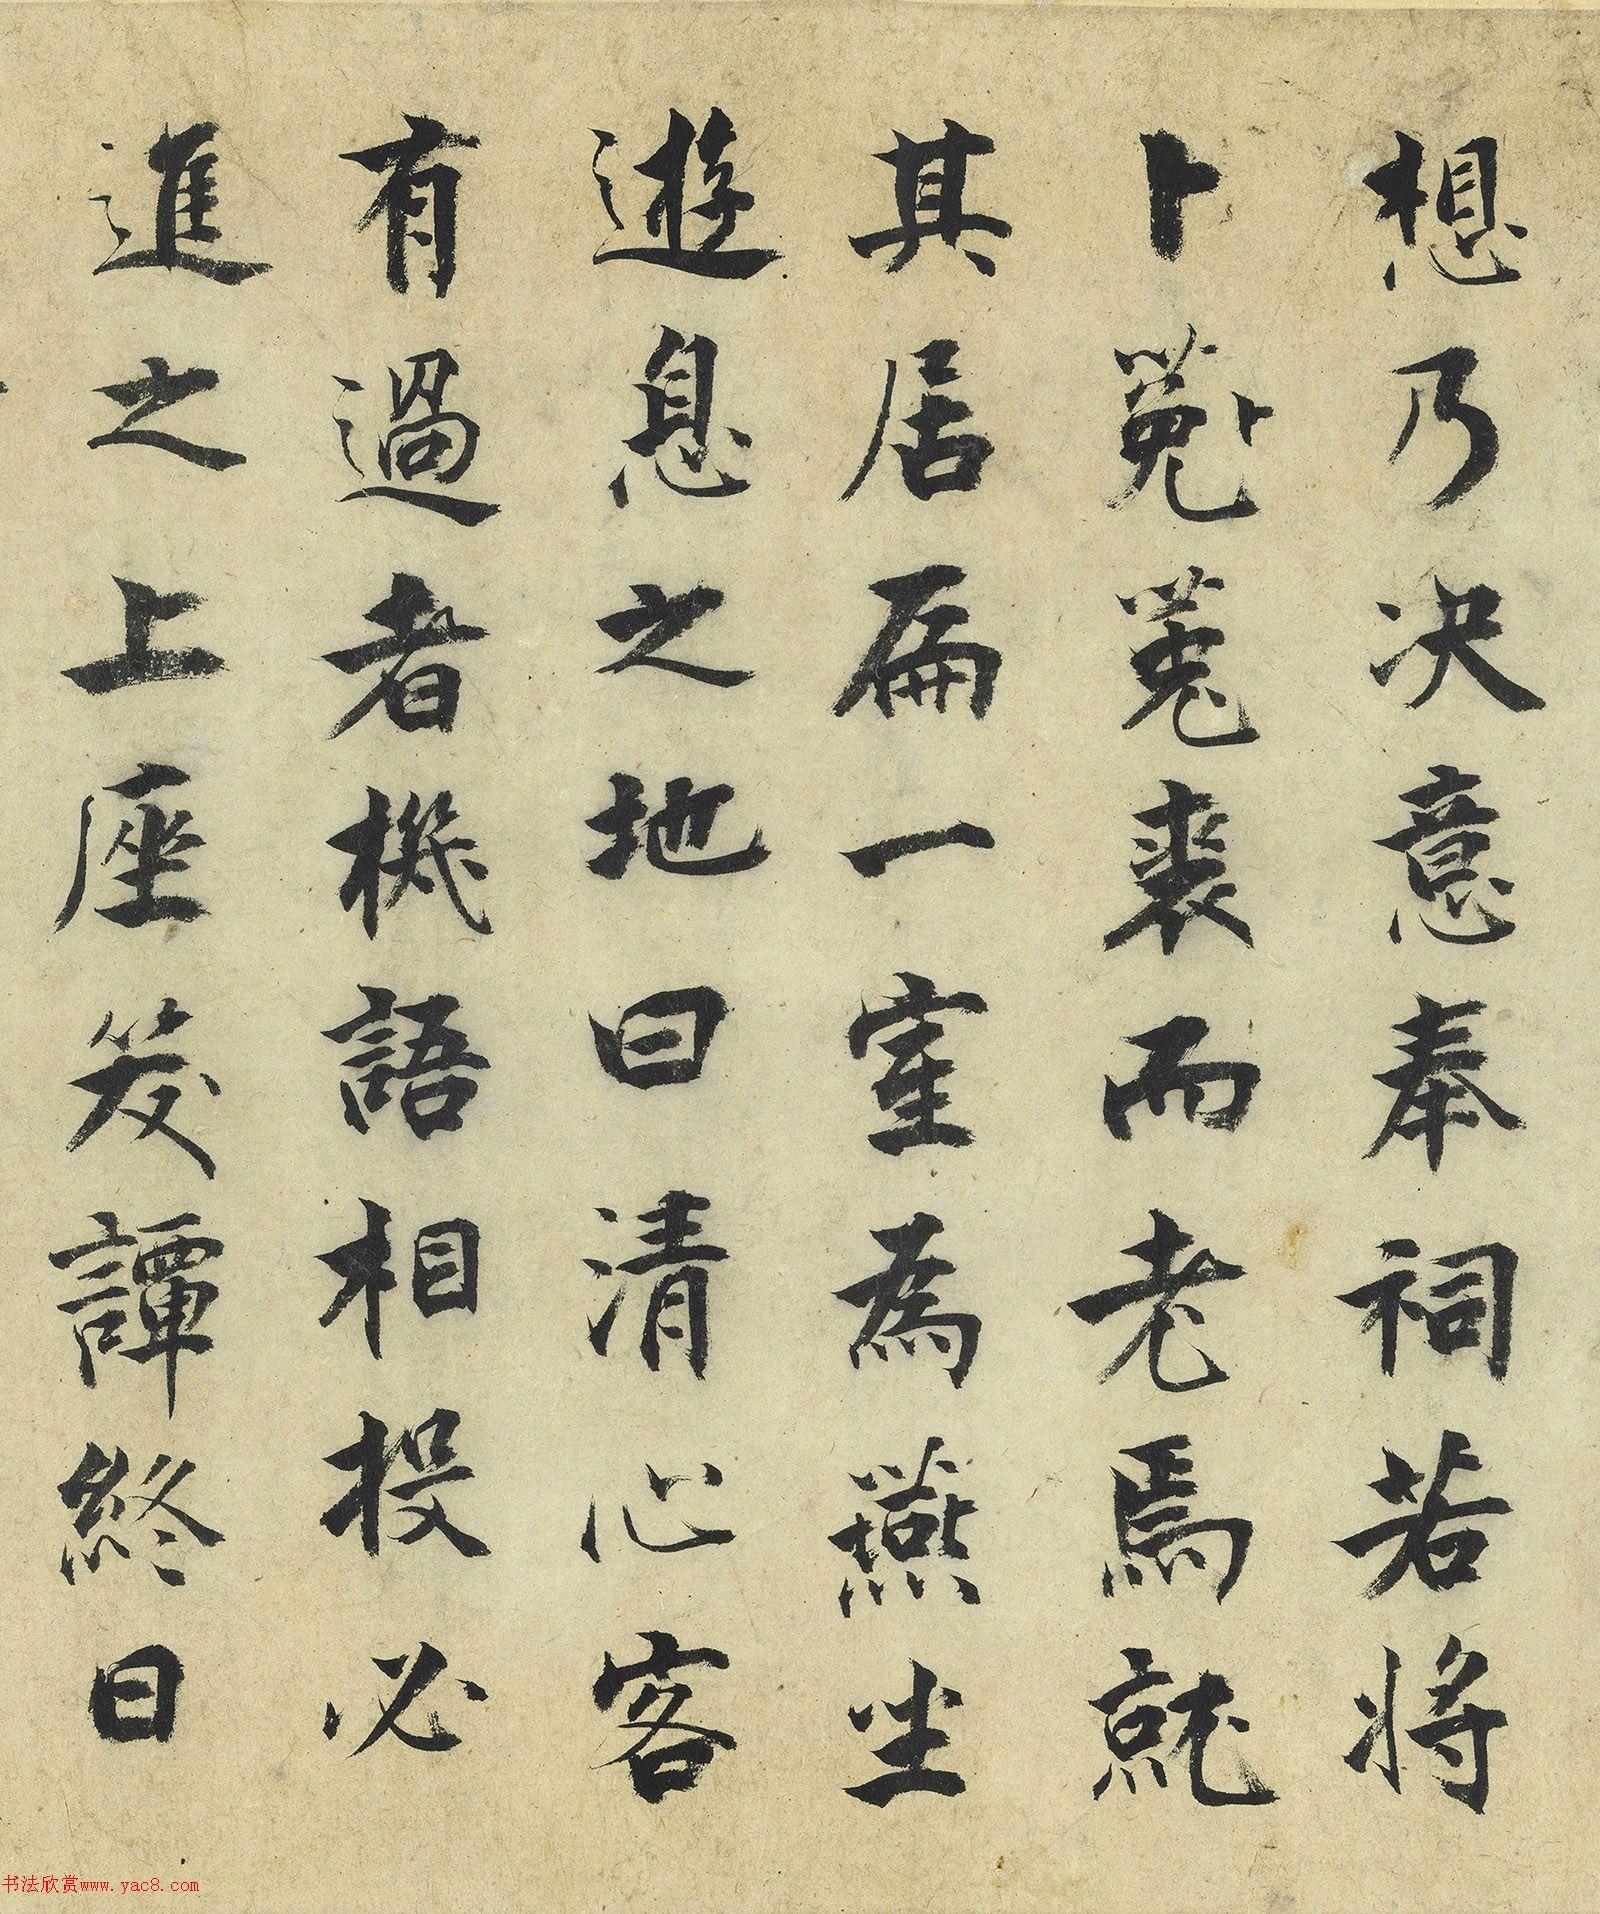 想乃决意奉祠若将
卜菟菟裘而老焉就
其居扁一室為燕坐
遊息之地曰清心客
有過者機語相投必
進之上座笈譚終日
书法欣赏www.yac8.com